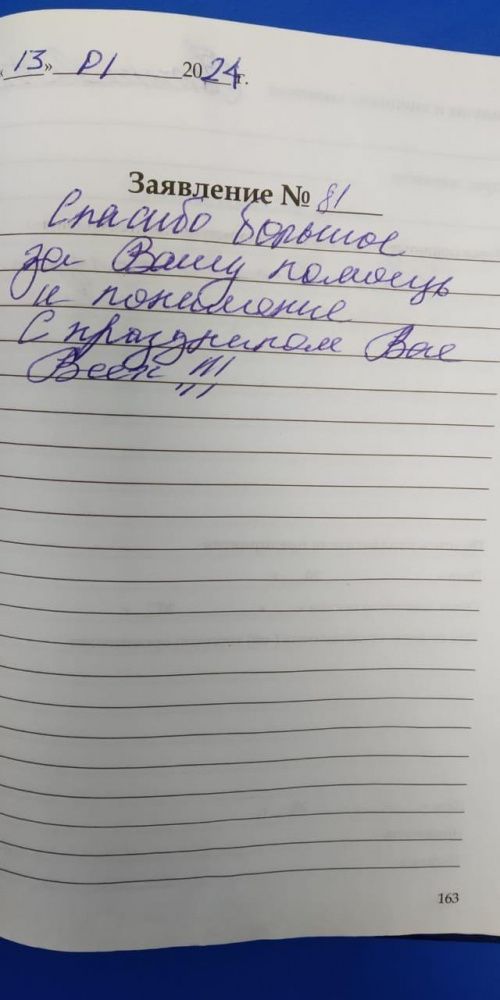 «13» 01 2024г.
Заявление № 81
Спасибо большое
за Вашу помощь
и понимание
С праздником Вас
Всех !!!
163